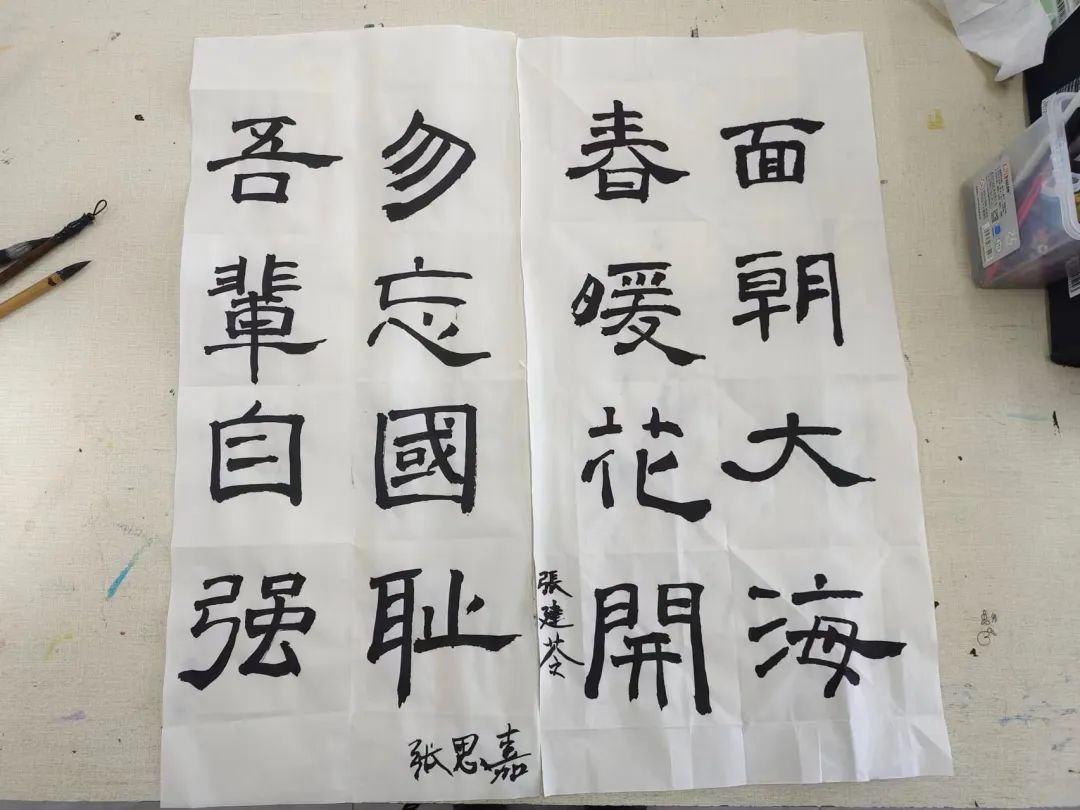 面朝大海
春暖花開
張建苓
勿忘國耻
吾輩自强
张思嘉